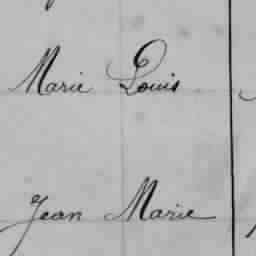 Marie Louis
Jean Marie